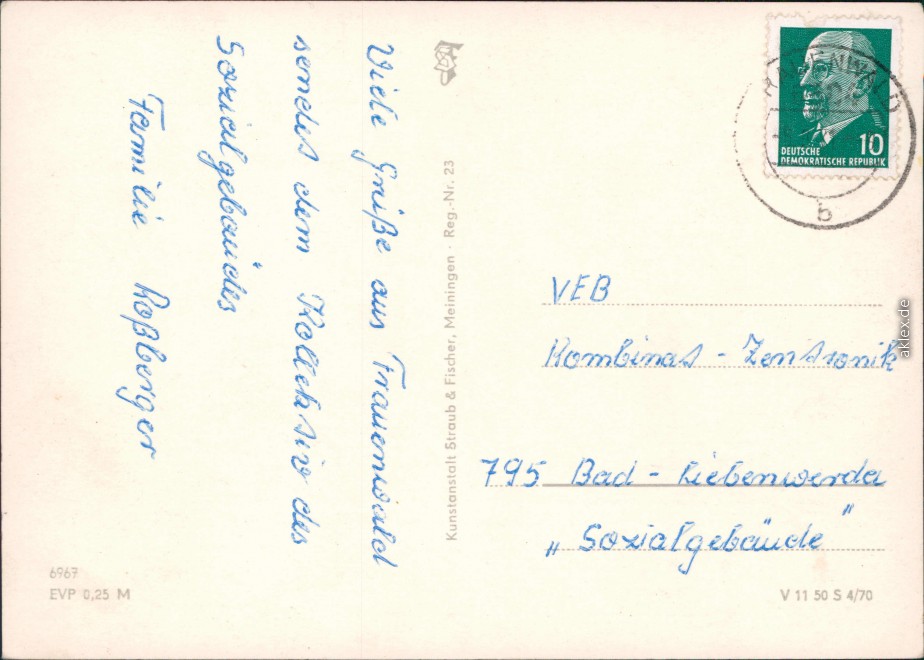 Viele Grüße aus Frauenwald
sendet dem Kollektiv des
Sozialgebäudes
Familie Roßberger
Kunstanstalt Straub & Fischer, Meiningen · Reg.-Nr. 23
6967
EVP 0,25 M
10
DEUTSCHE
DEMOKRATISCHE REPUBLIK
b
VEB
Kombinat - Zentronik
795 Bad - Liebenwerda
„Sozialgebäude"
V 11 50 S 4/70
aklex.de